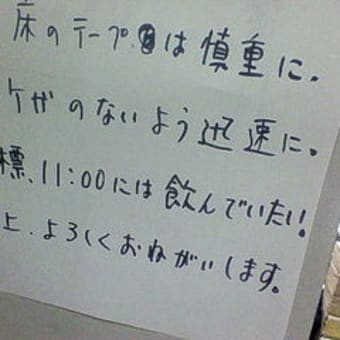 床のテープは慎重に.
ケガのないよう迅速に。
標、11:00には飲んでいたい!
上.よろしくおねがいします。